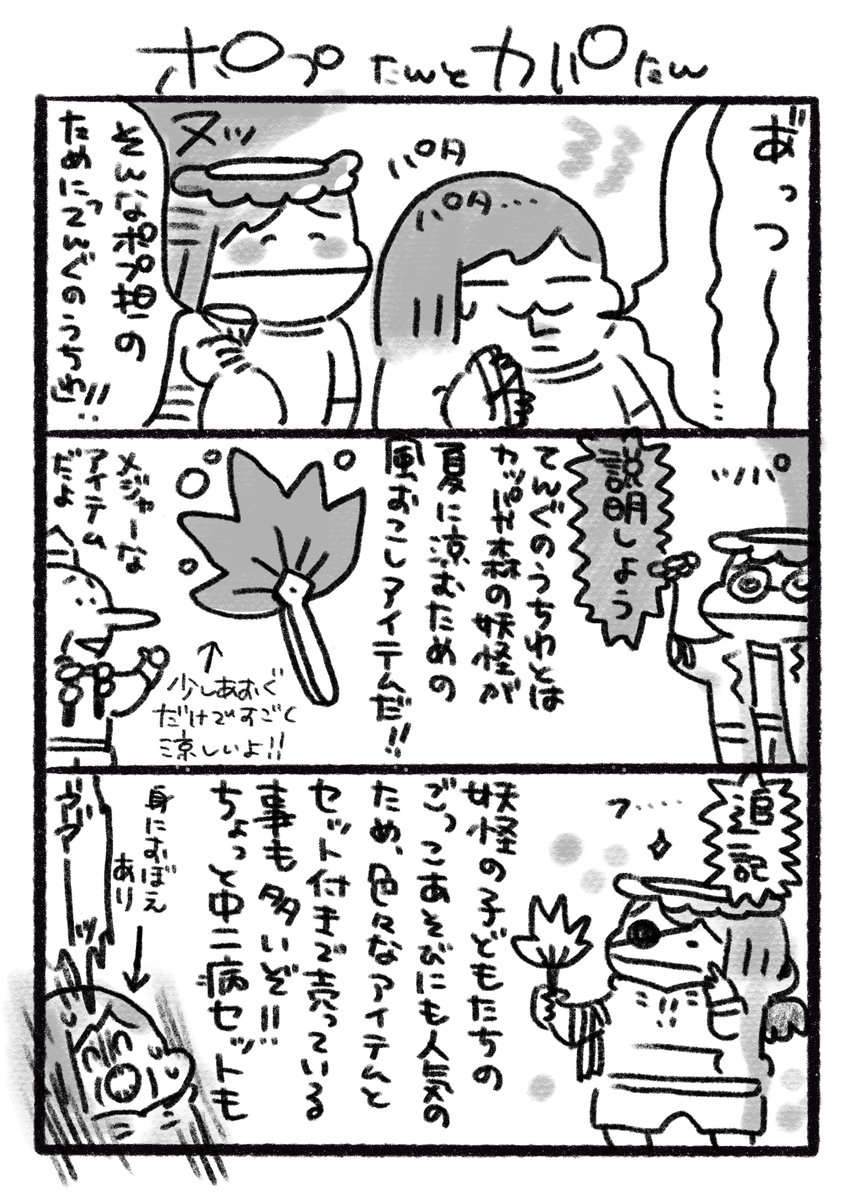 ポプたんとカパたん
あ゛っつ
パタ
パタ…
ヌッ
そんなポプ想の
ために「てんぐのうちわ」!!
ツパ
説明しよう
てんぐのうちわとは
カッパが森の妖怪が
夏に涼むための
風おこしアイテムだ!!
↑
少しあおぐ
だけですごく
涼しいよ!!
メジャーな
アイテム
だよ
追記
フ……
妖怪の子どもたちの
ごっこあそびにも人気の
ため、色々なアイテムと
セット付きで売っている
事も多いぞ!!
ちょっと中二病セットも
身におぼえ
あり